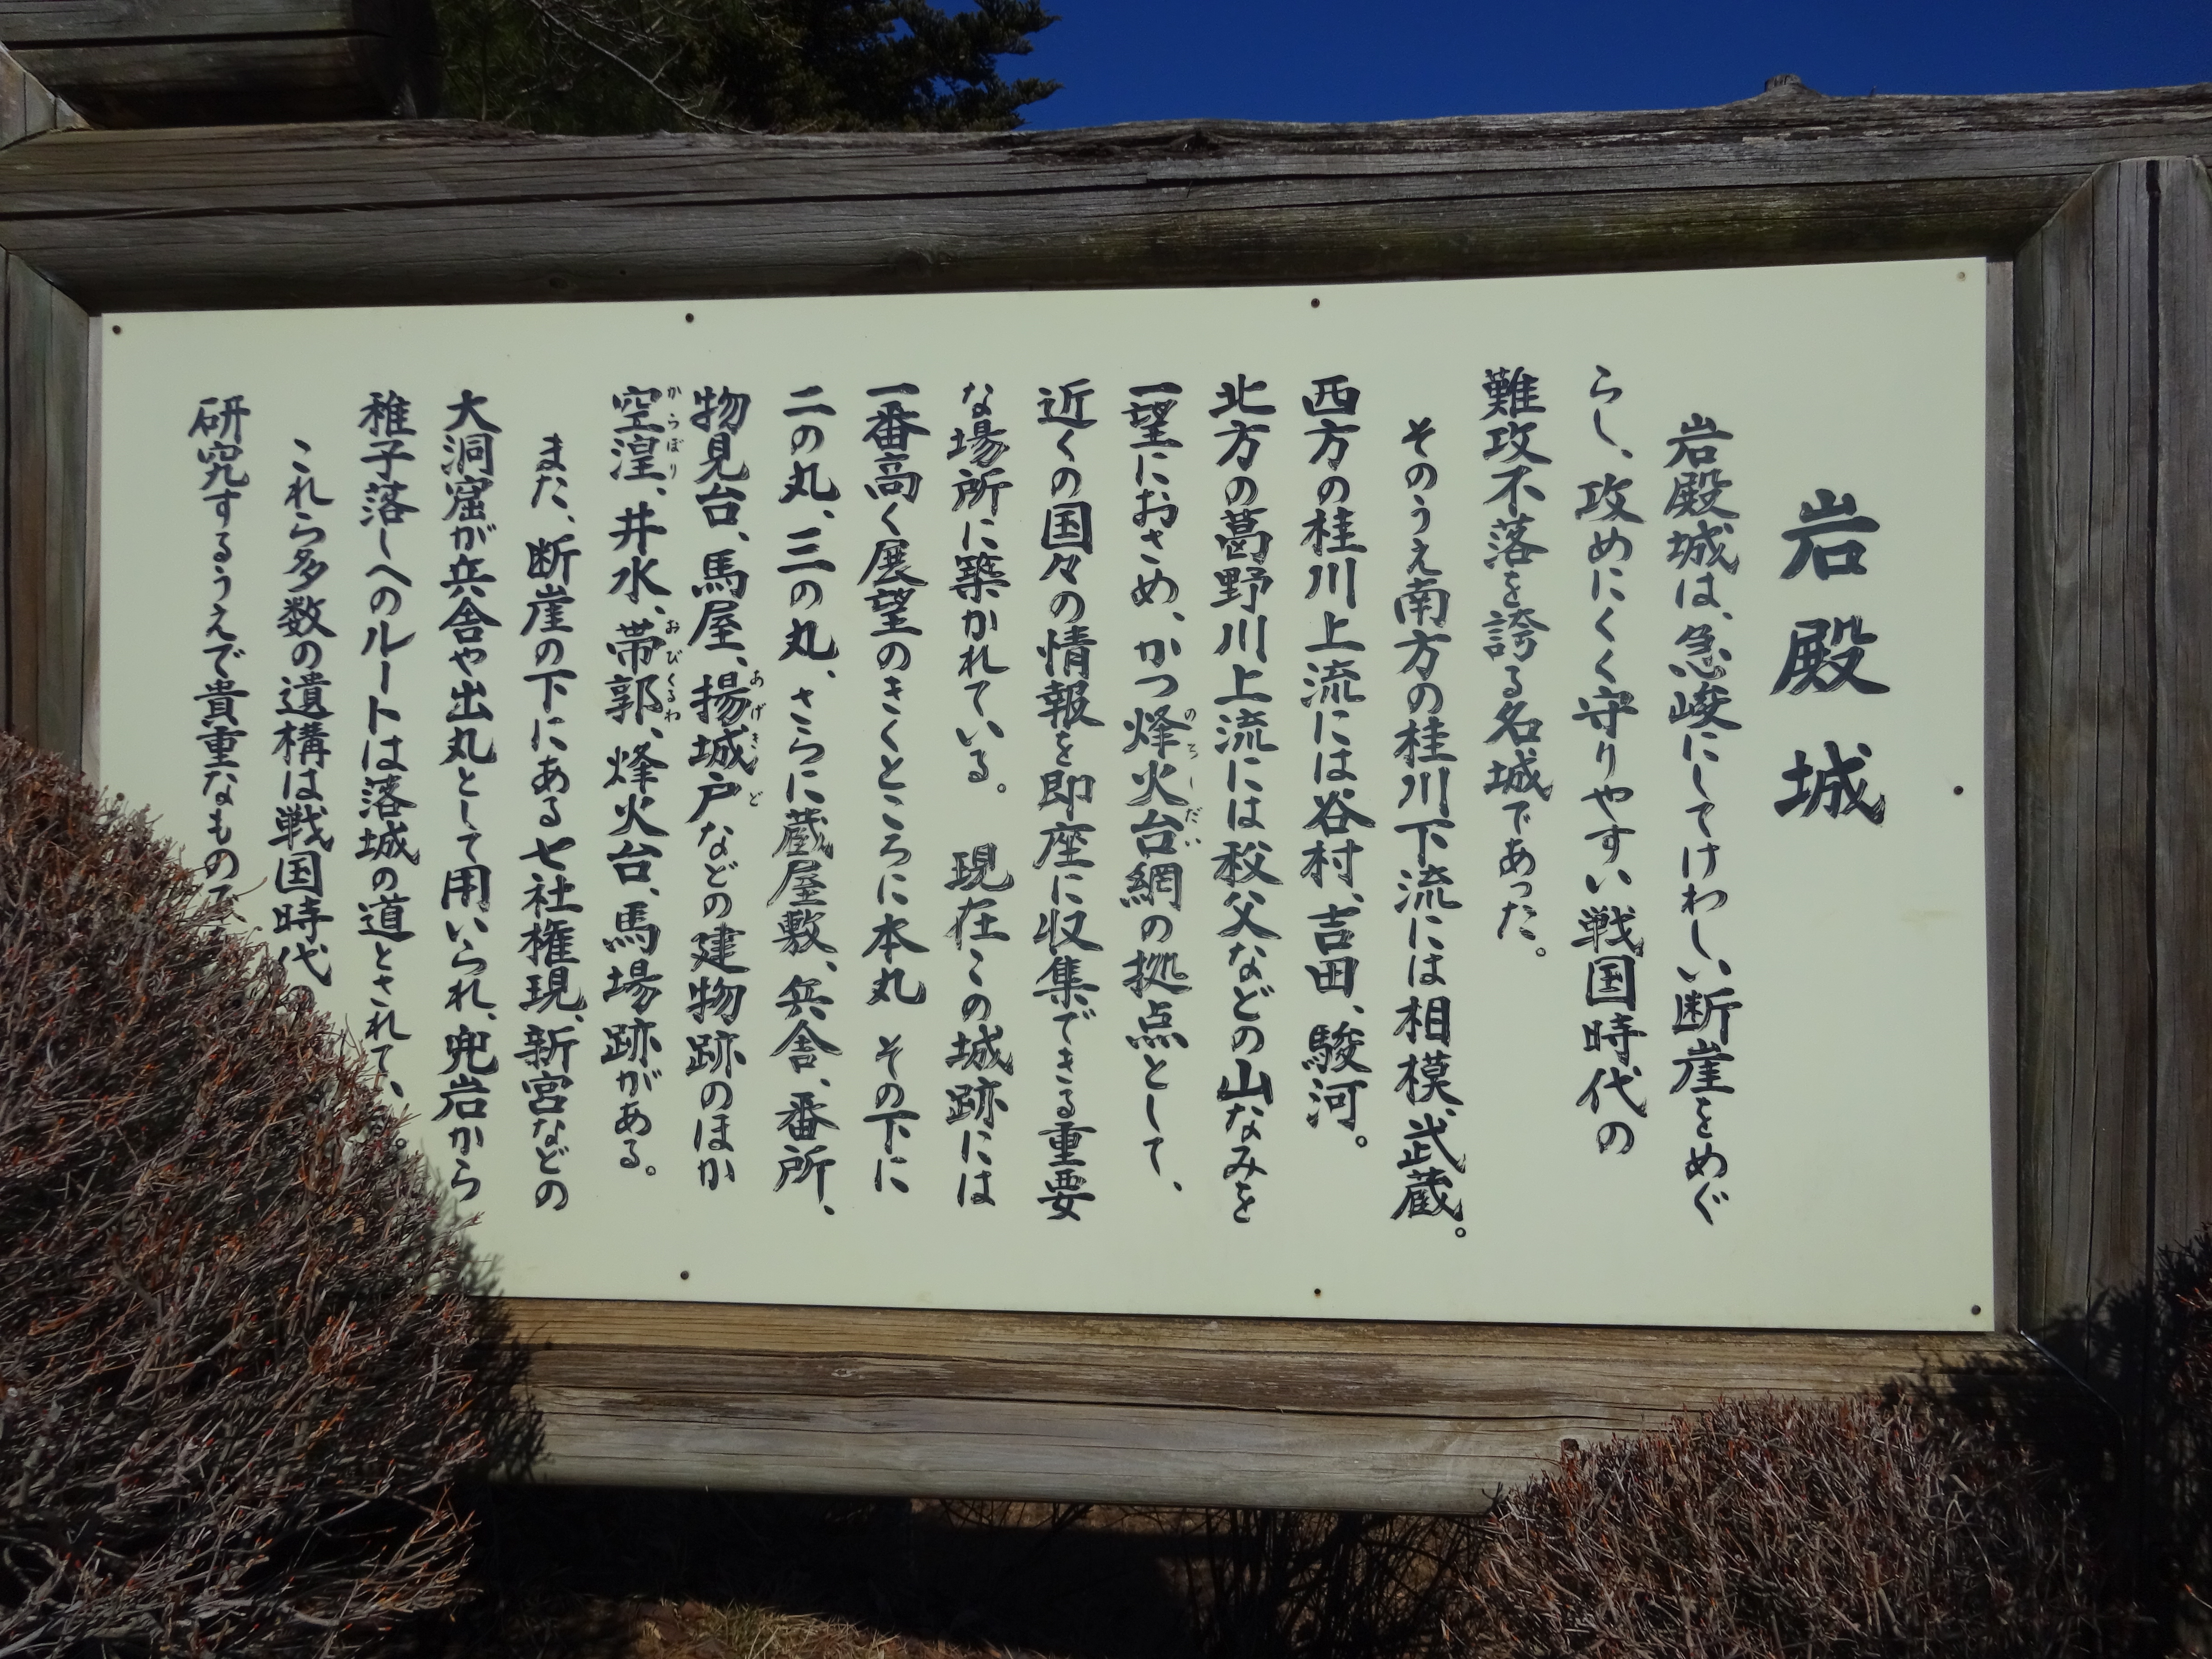 岩殿城
岩殿城は、急峻にしてけわしい断崖をめぐ
らし、攻めにくく守りやすい戦国時代の
難攻不落を誇る名城であった。
そのうえ南方の桂川下流には相模、武蔵。
西方の桂川上流には谷村、吉田、駿河。
北方の葛野川上流には秩父などの山なみを
一望におさめ、かつ烽火台網の拠点として、
のろしだい
近くの国々の情報を即座に収集できる重要
な場所に築かれている。 現在この城跡には
一番高く展望のきくところに本丸 その下に
二の丸、三の丸、さらに蔵屋敷、兵舎、番所、
物見台、馬屋、揚城戸などの建物跡のほか
あげきど
空湟、井水、帯郭、烽火台、馬場跡がある。
からぼり おびくるわ
また、断崖の下にある七社権現、新宮などの
大洞窟が兵舎や出丸として用いられ、兜岩から
稚子落しへのルートは落城の道とされて
これら多数の遺構は戦国時代
研究するうえで貴重なもの